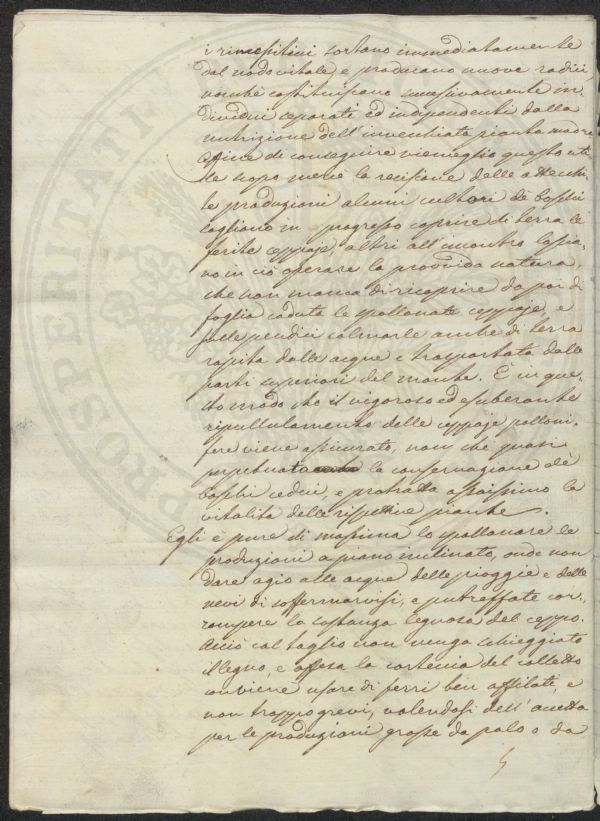 i rimessiticci sortano immediatamente
dal nodo vitale, e producano nuove radici,
nonchè costituiscano successivamente in-
dividui separati ed independenti dalla
nutrizione dell'invecchiata pianta madre
Affine di conseguire viemeglio questo uti-
le scopo mercè la recisione delle
produzioni alcuni cultori de' boschi
vogliano in progresso coprire di terra le
ferite ceppaje, altri all'incontro lascia-
no in ciò operare la provvida natura
che non manca di ricoprire da poi di
foglia caduta le spollonate ceppaje, e
nelle pendici colmarle anche di terra
rapita dalle acque e trasportata dalle
parti superiori del monte. È in que-
sto modo che il vigoroso ed esuberante
ripullulamento delle ceppaje polloni-
fere viene assicurato, non che quasi
perpetuata la conservazione de'
boschi cedui, e protratta assaissimo la
vitalità delle rispettive piante.
Egli è pure di massima lo spollonare le
produzioni a piano inclinato, onde non
dare agio alle acque delle pioggie e delle
nevi di soffermarvisi, e putreffate cor-
rompere la sostanza legnosa del ceppo.
Acciò col taglio non venga scheggiato
il legno, e offesa la corteccia del colletto
conviene usare di ferri ben affilati, e
non troppo grevi, valendosi dell'accetta
per le produzioni grosse da palo o da
PROSPERITATI